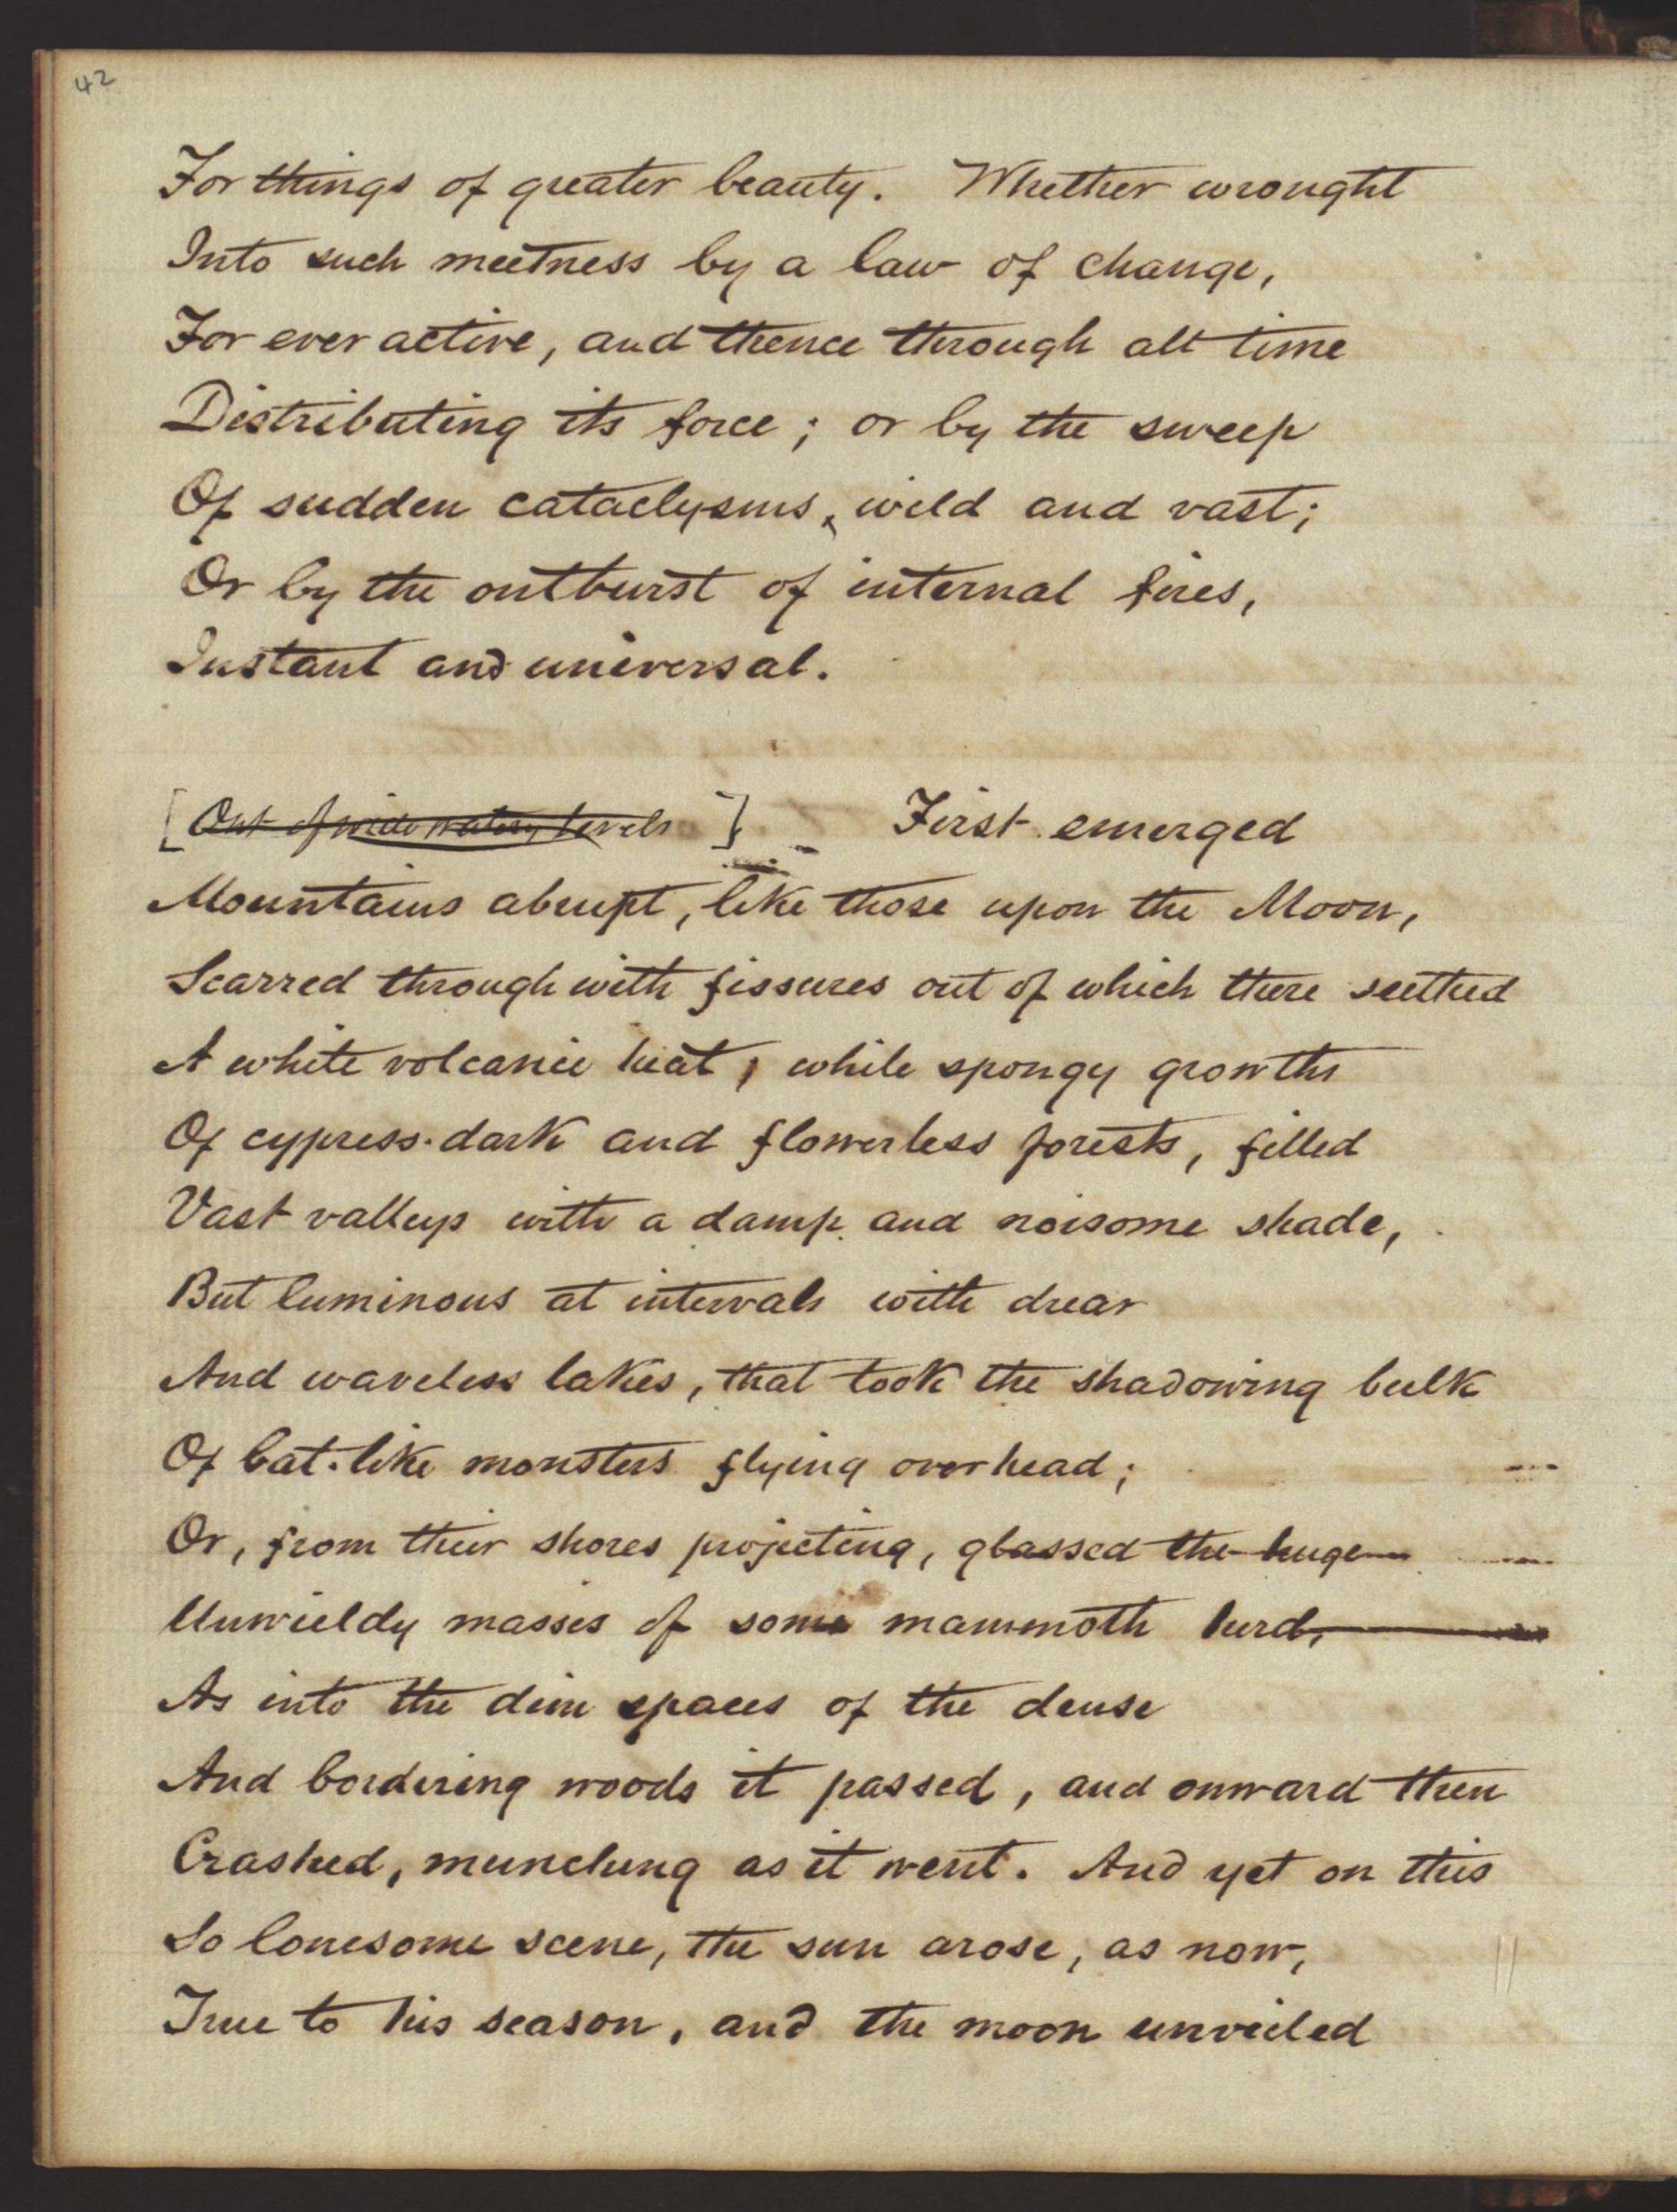 42
For things of greater beauty. Whether wrought
Into such meetness by a law of change,
For ever active, and thence through all time
Distributing its force; or by the sweep
Of sudden cataclysms, wild and vast;
Or by the outburst of internal fires,
Instant and universal.
[Out of wide watery levels] First emerged
Mountains abrupt, like those upon the Moon,
Scarred through with fissures out of which there seethed
A white volcanic heat, while spongy growths
Of cypress-dark and flowerless forests, filled
Vast valleys with a damp and noisome shade,
But luminous at intervals with drear
And waveless lakes, that took the shadowing bulk
Of bat-like monsters flying overhead;
Or, from their shores projecting, glassed the huge
Unwieldy masses of some mammoth herd,
As into the dim spaces of the dense
And bordering woods it passed, and onward then
Crashed, munching as it went. And yet on this
So lonesome scene, the sun arose, as now,
True to his season, and the moon unveiled